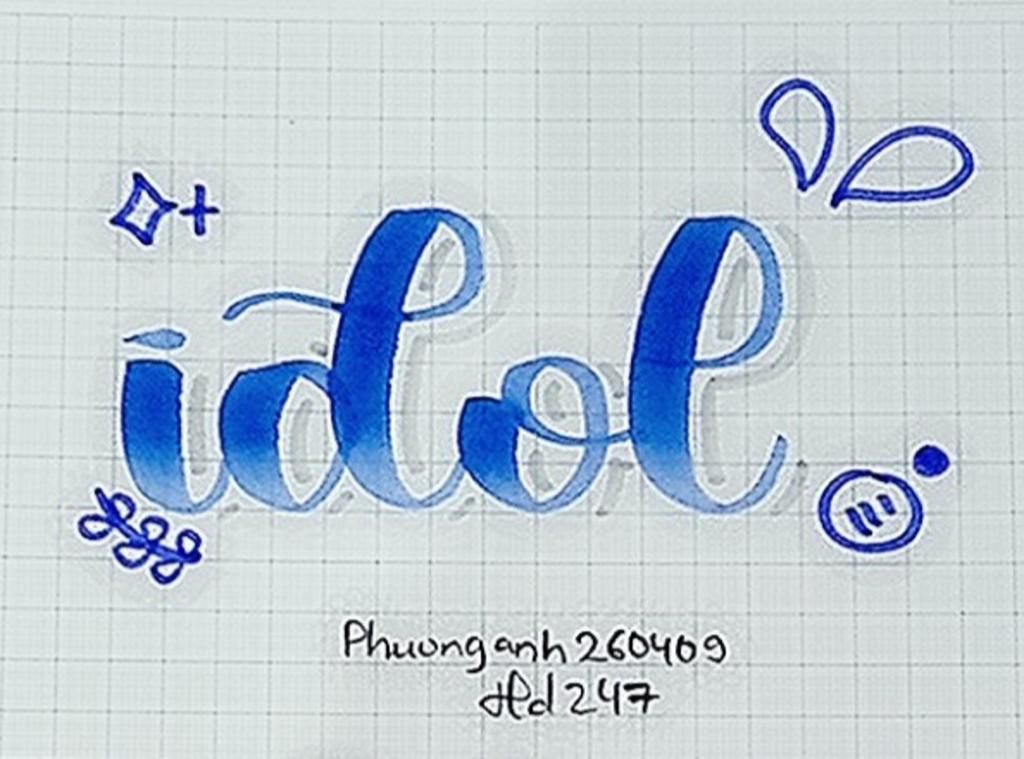 idol
Phuonganh260409
Hd247